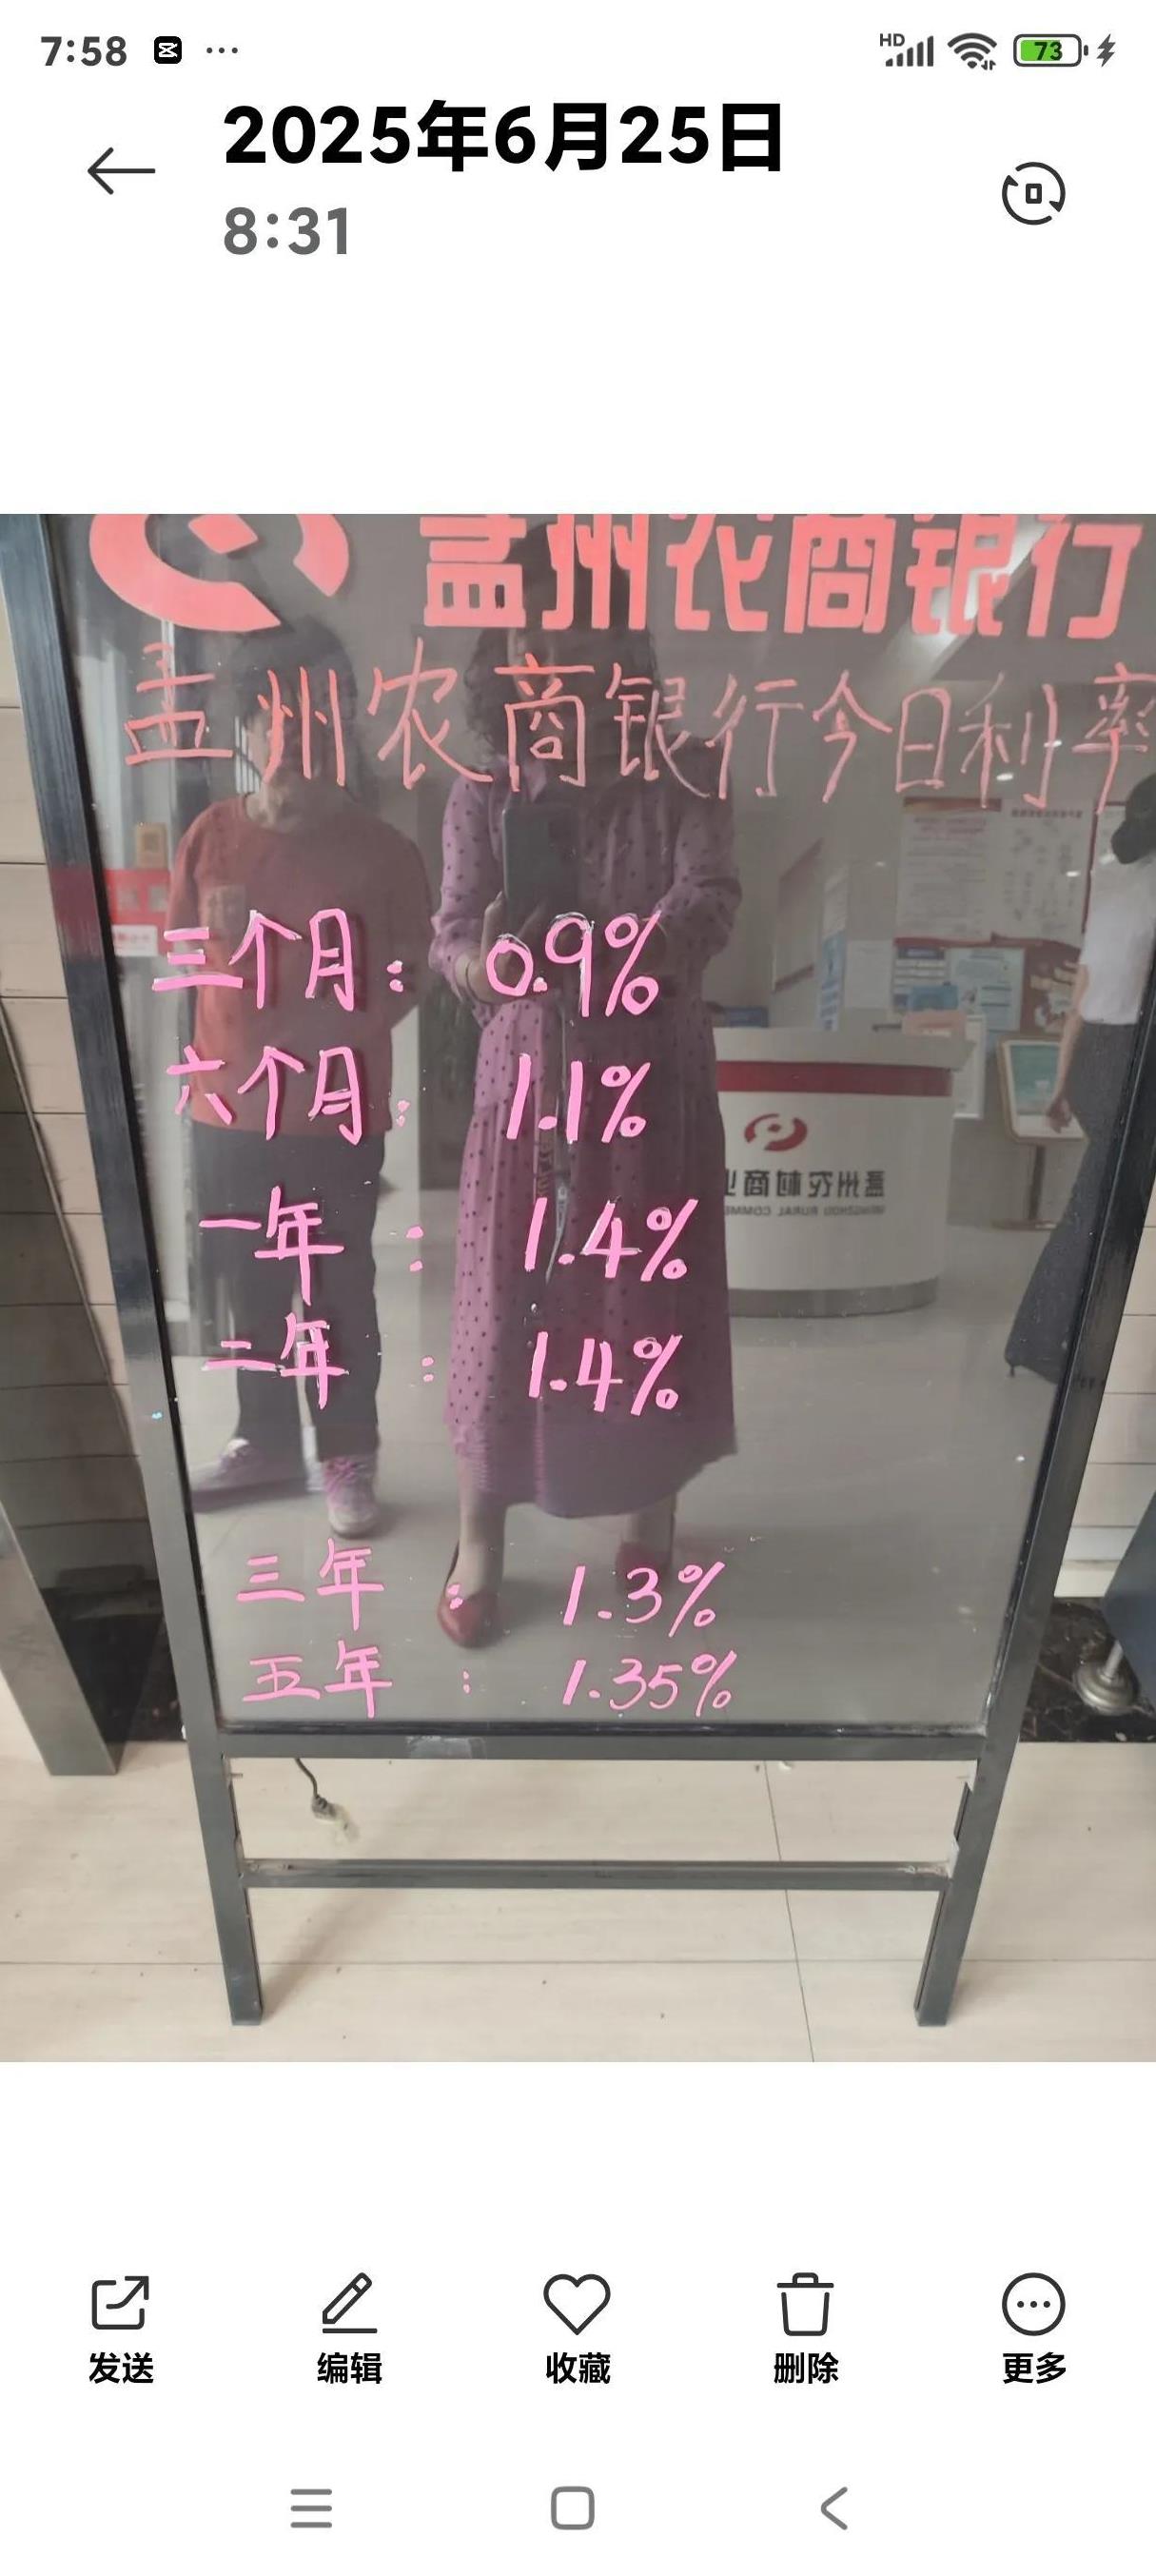 7:58
HD
73
2025年6月25日
8:31
孟州农商银行
孟州农商银行今日利率
三个月：0.9%
六个月：1.1%
一年：1.4%
二年：1.4%
三年：1.3%
五年：1.35%
发送 编辑 收藏 删除 更多